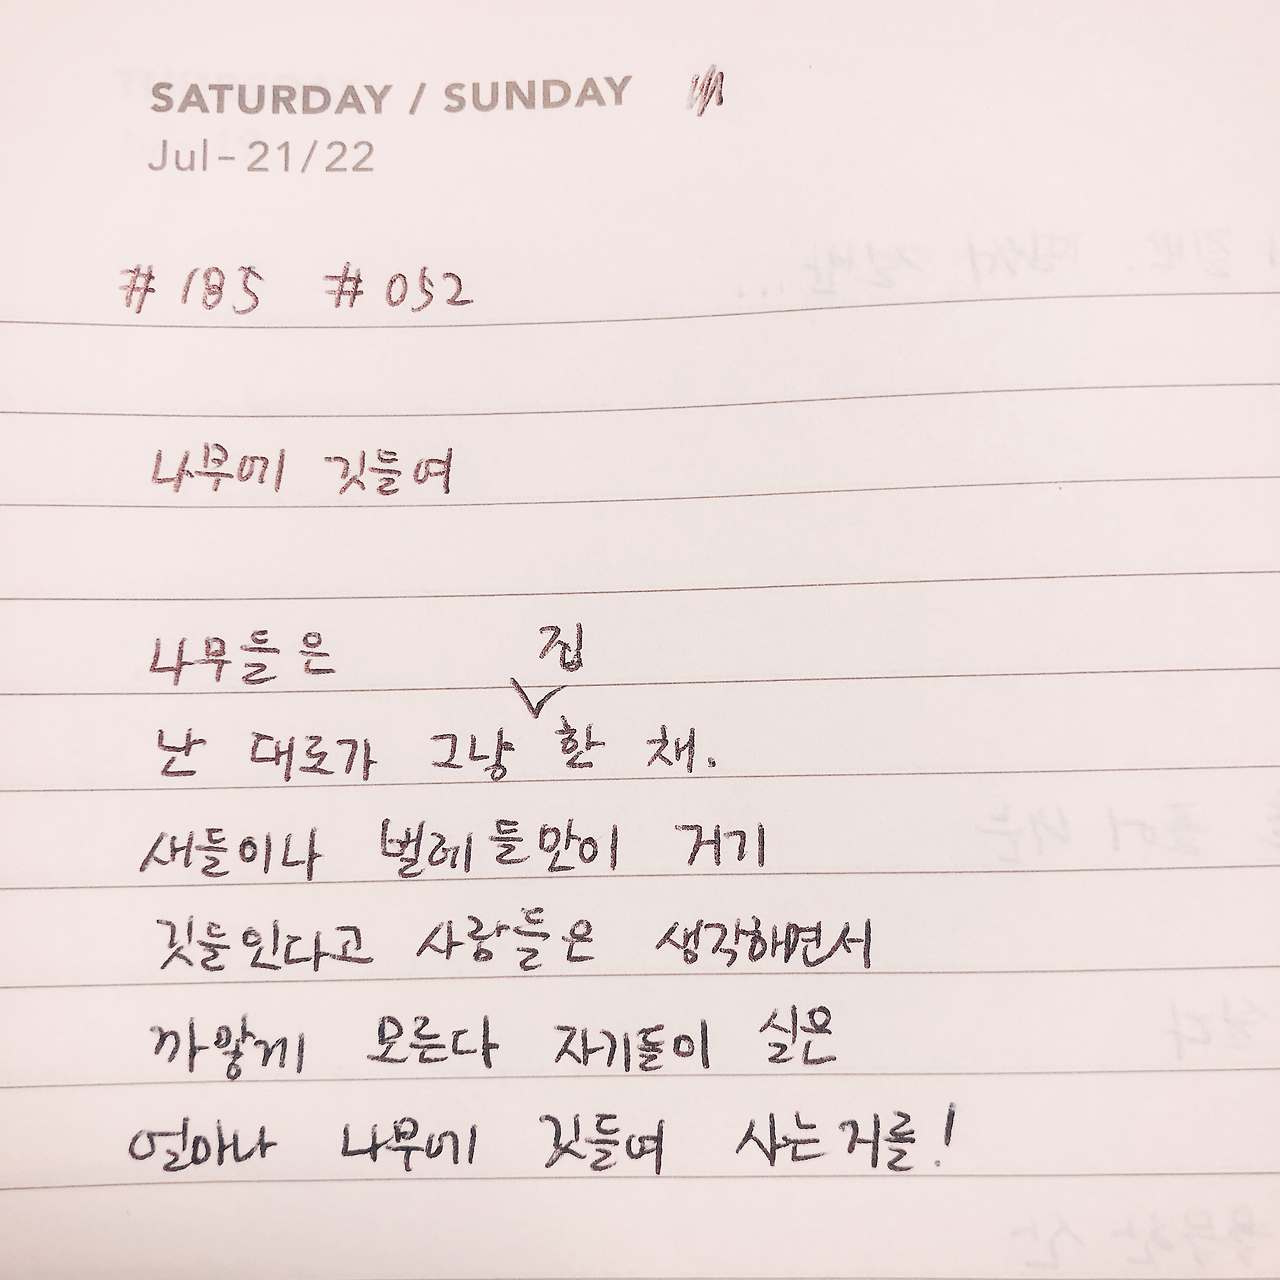 SATURDAY / SUNDAY
Jul-21/22
#185 #052
나무에 깃들여
나무들은
난 대로가 그냥 집 한 채.
새들이나 벌레들만이 거기
깃들인다고 사람들은 생각하면서
까맣게 모른다 자기들이 실은
얼마나 나무에 깃들여 사는 거를!